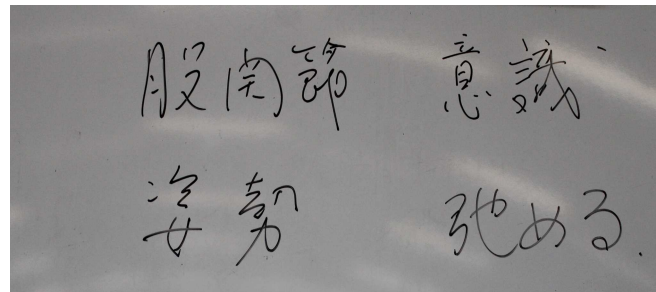 股関節 意識
姿勢 弛める.